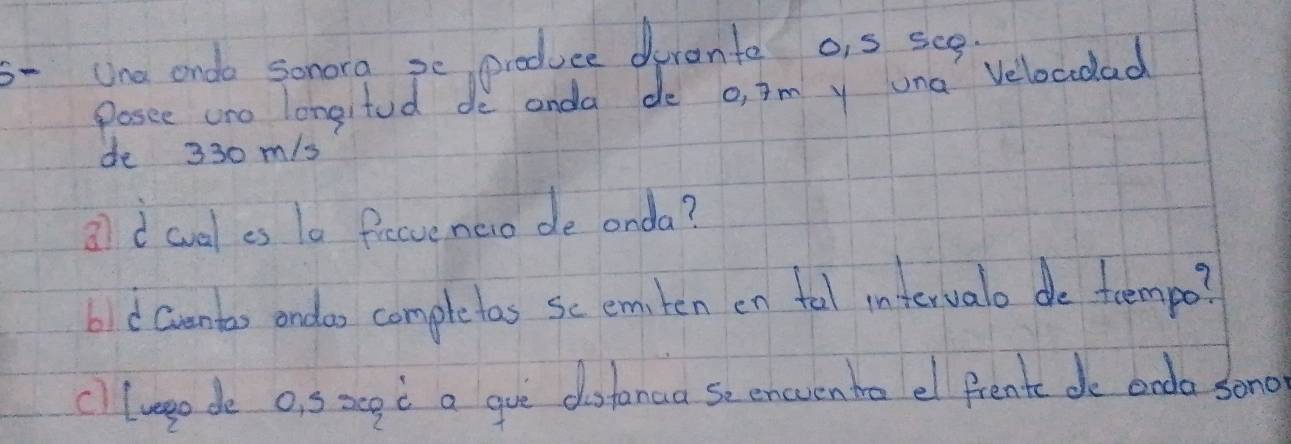 5- Una onda sonora se produce durante 0,5 seg.
Posee una longitud de onda de 0,7m y una velocidad
de 330 m/s
a) ¿cual es la frecuencia de onda?
b) ¿Cuantas ondas completas se emiten en tal intervalo de tiempo?
c) Luego de 0,5 seg ¿ a qué distancia se encuentra el frente de onda sonor